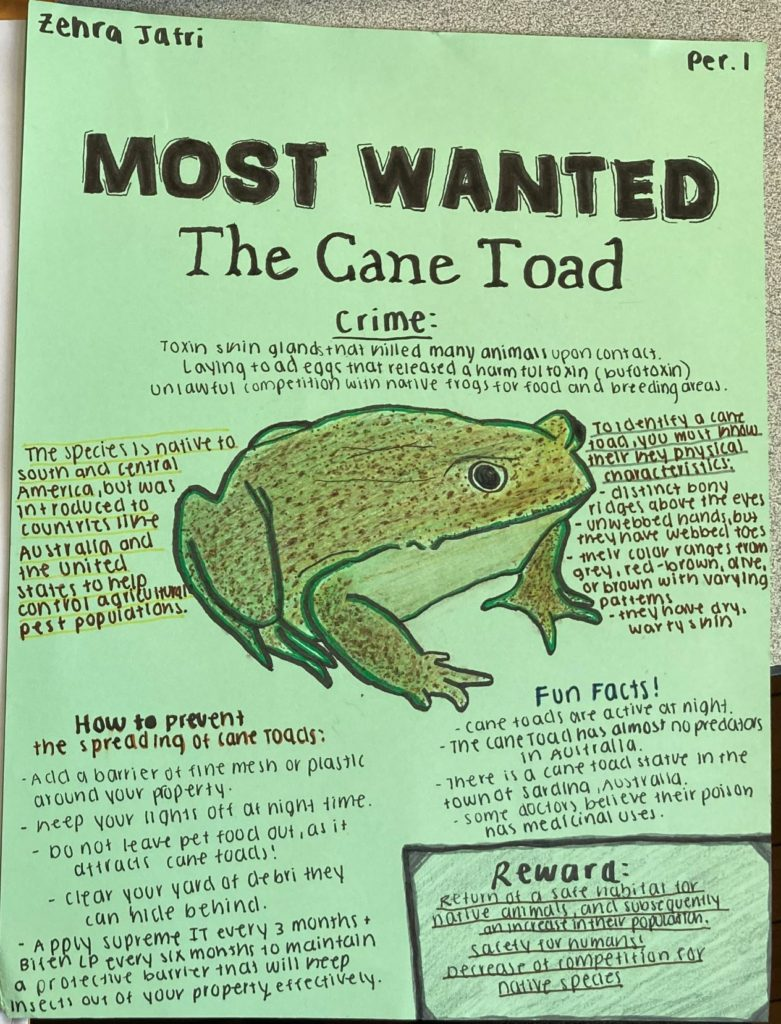 Zehra Jafri
Per. 1
MOST WANTED
The Cane Toad
Crime:
Toxin skin glands that killed many animals upon contact.
Laying toad eggs that released a harmful toxin (bufotoxin)
Unlawful competition with native frogs for food and breeding areas.
The species is native to
south and central
America, but was
introduced to
countries like
Australia and
the United
States to help
control agricultural
pest populations.
To identify a cane
toad, you most know
their key physical
characteristics.
- distinct bony
ridges above the eyes
- unwebbed hands, but
they have webbed toes
- their color ranges from
grey, red-brown, olive,
or brown with varying
patterns
- they have dry,
warty skin
How to prevent
the spreading of cane toads:
- Add a barrier of fine mesh or plastic
around your property.
- keep your lights off at night time.
- Do not leave pet food out, as it
attracts cane toads!
- clear your yard of debri they
can hide behind.
- Apply Supreme IT every 3 months +
Bifen LP every six months to maintain
a protective barrier that will keep
insects out of your property effectively.
Fun Facts!
- cane toads are active at night.
- The cane toad has almost no predators
in Australia.
- There is a cane toad statue in the
town of Sarding, Australia.
- some doctors believe their poison
has medicinal uses.
Reward:
Return of a safe habitat for
native animals, and subsequently
an increase in their population.
safety for humans!
Decrease of competition for
native species